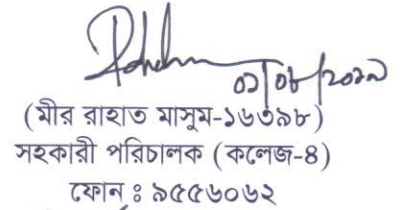 ০১/০৮/২০১৯
(মীর রাহাত মাসুম-১৬৩৯৮)
সহকারী পরিচালক (কলেজ-৪)
ফোন ঃ ৯৫৫৬০৬২